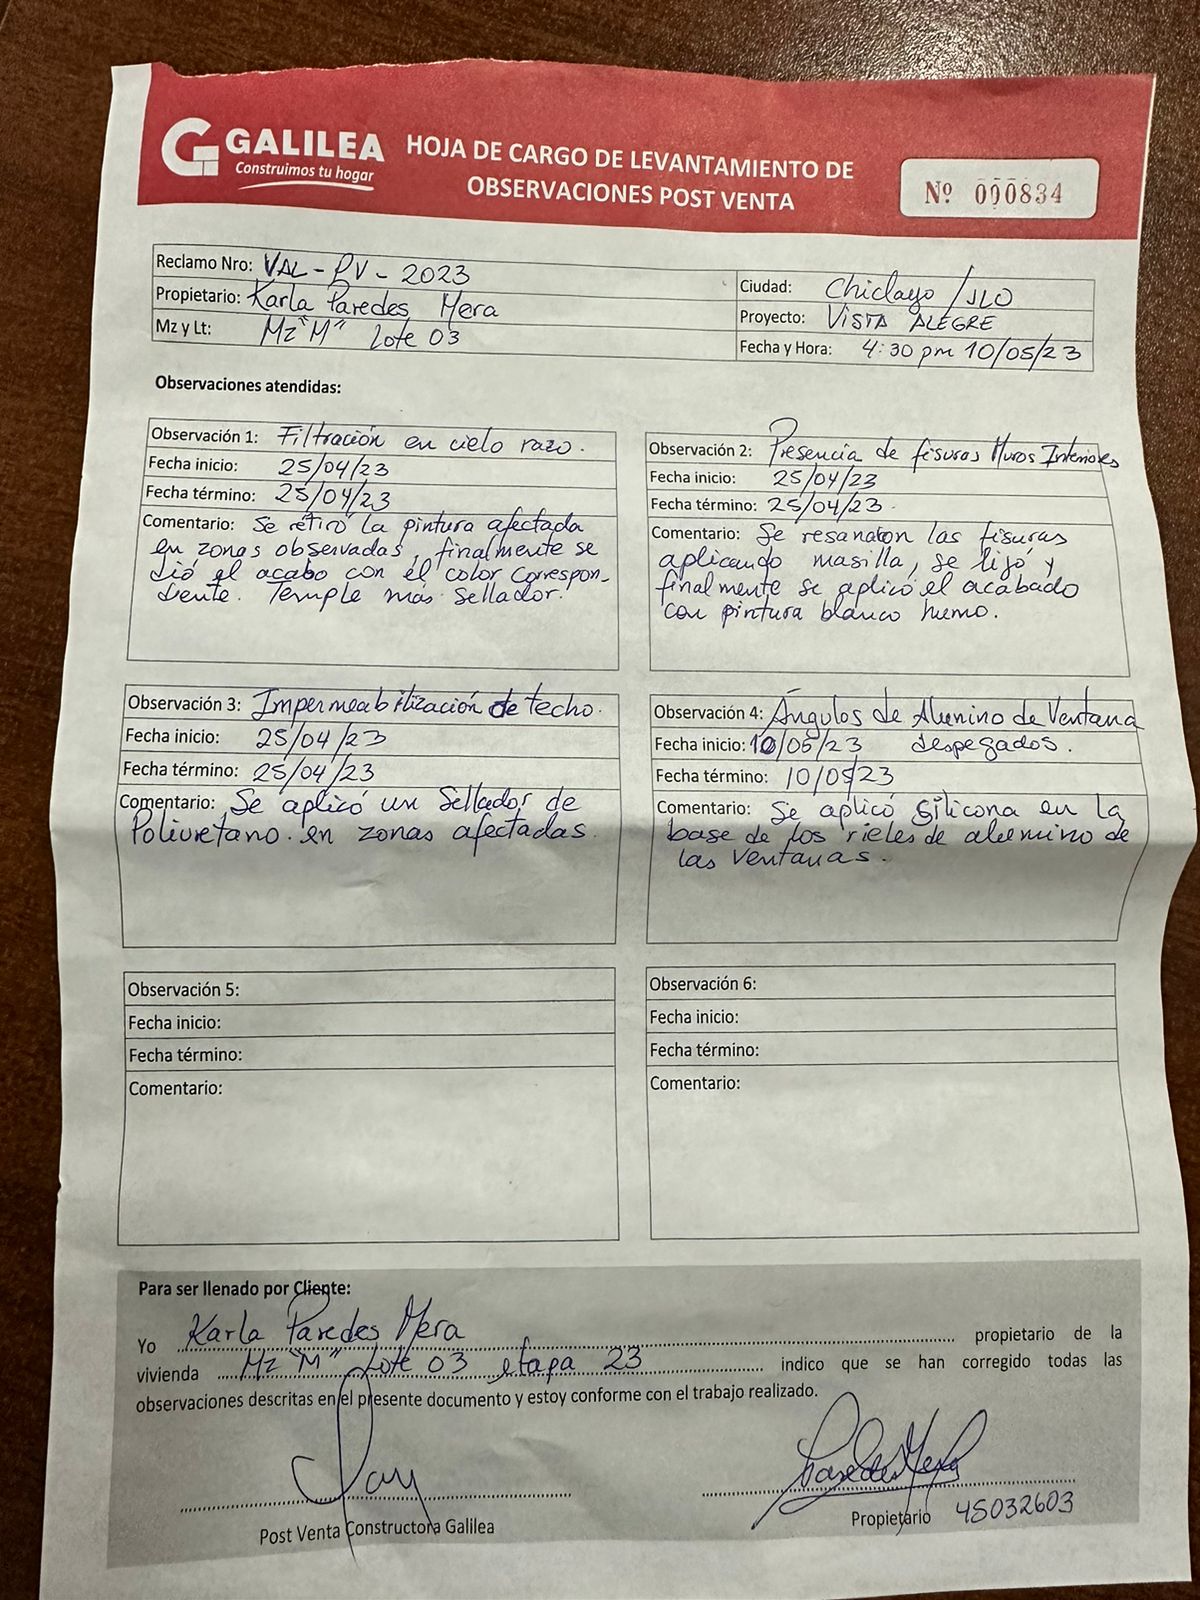 GALILEA
Construimos tu hogar
HOJA DE CARGO DE LEVANTAMIENTO DE
OBSERVACIONES POST VENTA
Nº 000834
Reclamo Nro: VAL - PV - 2023
Propietario: Karla Paredes Mera
Mz y Lt: Mz "M" Lote 03
Ciudad: Chiclayo / JLO
Proyecto: VISTA ALEGRE
Fecha y Hora: 4:30 pm 10/05/23
Observaciones atendidas:
Observación 1: Filtración en cielo razo.
Fecha inicio: 25/04/23
Fecha término: 25/04/23
Comentario: Se retiró la pintura afectada
en zonas observadas, finalmente se
dió el acabo con el color correspon-
diente. Temple mas Sellador.
Observación 2: Presencia de fisuras Muros Interiores
Fecha inicio: 25/04/23
Fecha término: 25/04/23.
Comentario: Se resanaron las fisuras
aplicando masilla, se lijó y
finalmente se aplicó el acabado
con pintura blanco humo.
Observación 3: Impermeabilización de techo.
Fecha inicio: 25/04/23
Fecha término: 25/04/23
Comentario: Se aplicó un Sellador de
Poliuretano. en zonas afectadas.
Observación 4: Ángulos de Alumino de Ventana
Fecha inicio: 10/05/23 despegados.
Fecha término: 10/05/23
Comentario: Se aplicó Silicona en la
base de los rieles de alumino de
las ventanas.
Observación 5:
Fecha inicio:
Fecha término:
Comentario:
Observación 6:
Fecha inicio:
Fecha término:
Comentario:
Para ser llenado por Cliente:
Yo Karla Paredes Mera propietario de la
vivienda Mz "M" Lote 03 etapa 23 indico que se han corregido todas las
observaciones descritas en el presente documento y estoy conforme con el trabajo realizado.
Post Venta Constructora Galilea
Propietario 45032603